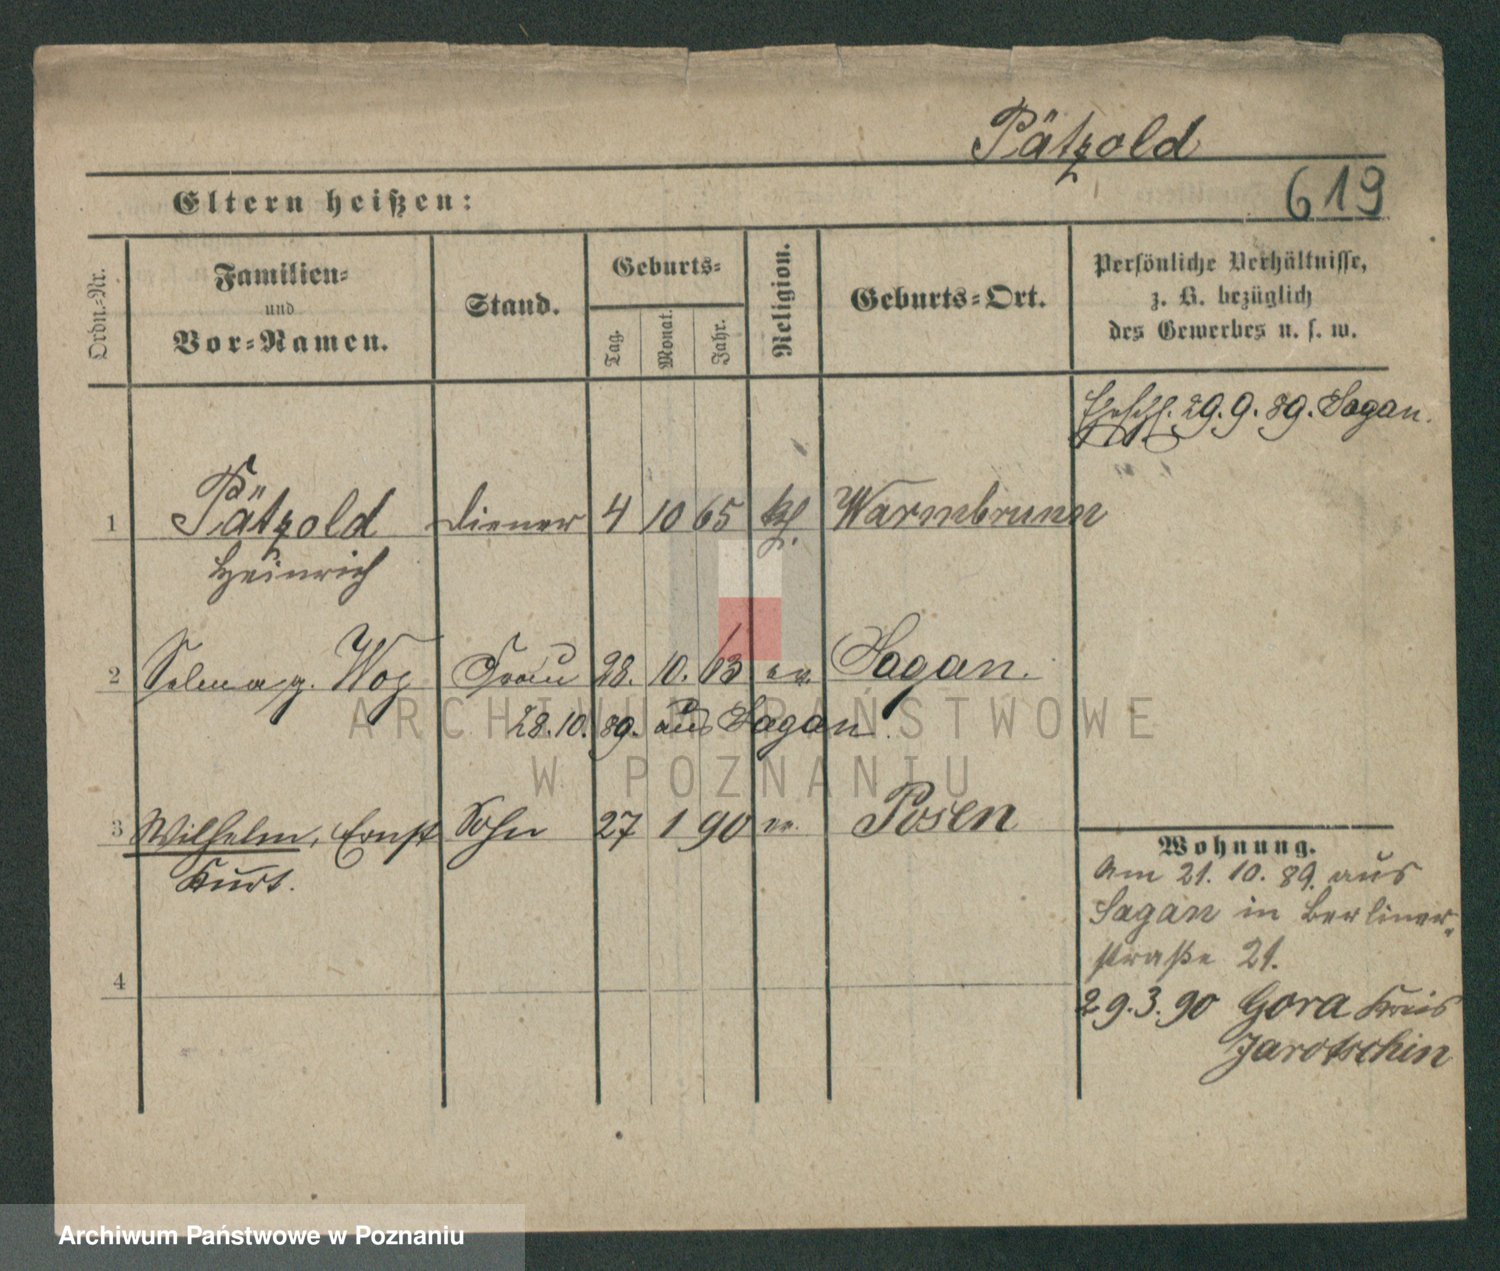 Pätzold
619
Eltern heißen:
Ordn.-Nr.
Familien-
und
Vor-Namen.
Stand.
Geburts-
Tag.
Monat.
Jahr.
Religion.
Geburts-Ort.
Persönliche Verhältnisse,
z. B. bezüglich
des Gewerbes u. s. w.
29. 9. 89. Sagan.
1 Pätzold Diener 4 10 65 Warmbrunn
Heinrich
2 Selma g. Frau 28. 10. 63 ev. Sagan.
28. 10. 89. aus Sagan.
3 Wilhelm, Ernst Sohn 27 1 90 ev. Posen
Kurt.
4
Wohnung.
Am 21. 10. 89. aus
Sagan in Berliner-
straße 21.
29. 3. 90 Gora Kreis
Jarotschin
ARCHIWUM PAŃSTWOWE
W POZNANIU
Archiwum Państwowe w Poznaniu